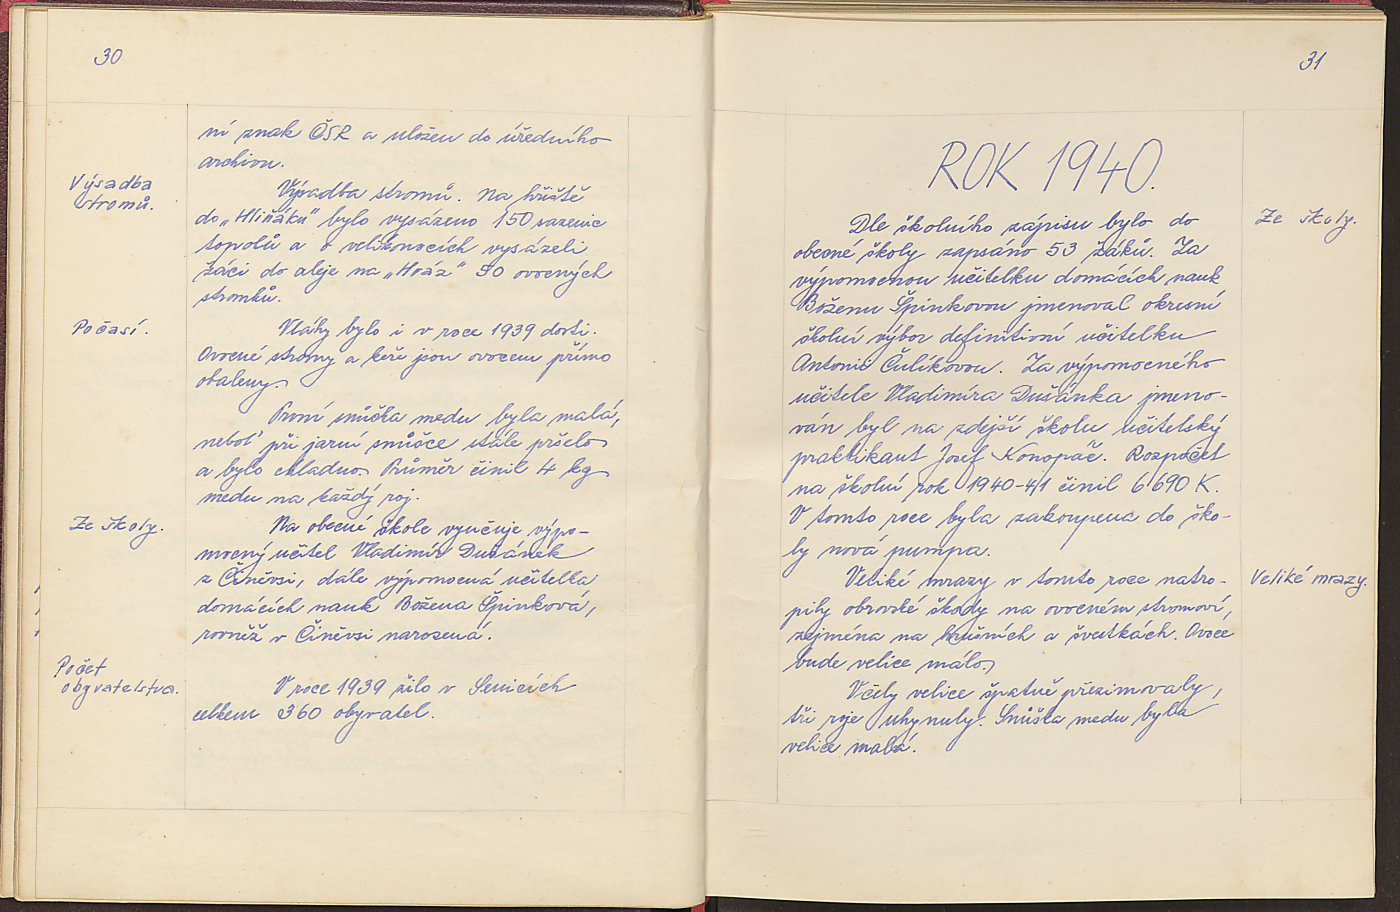 30
ní znak ČSR a uložen do úředního
archivu.
Výsadba
stromů.
Výsadba stromů. Na hřiště
do „Hliňáku" bylo vysázeno 150 sazenic
topolů a o velikonocích vysázeli
žáci do aleje na „Hráz" 30 ovocných
stromků.
Počasí.
Vláhy bylo i v roce 1939 dosti.
Ovocné stromy a keře jsou ovocem přímo
obaleny.
První snůška medu byla malá,
neboť při jarní snůšce stále pršelo
a bylo chladno. Průměr činil 4 kg
medu na každý roj.
Ze školy.
Na obecné škole vyučuje výpo-
mocný učitel Vladimír Dušánek
z Činěvsi, dále výpomocná učitelka
domácích nauk Božena Špinková,
rovněž v Činěvsi narozená.
Počet
obyvatelstva.
V roce 1939 žilo v Senicích
celkem 360 obyvatel.
31
ROK 1940.
Ze školy.
Dle školního zápisu bylo do
obecné školy zapsáno 53 žáků. Za
výpomocnou učitelku domácích nauk
Boženu Špinkovou jmenoval okresní
školní výbor definitivní učitelku
Antonii Čulíkovou. Za výpomocného
učitele Vladimíra Dušánka jmeno-
ván byl na zdejší školu učitelský
praktikant Josef Konopáč. Rozpočet
na školní rok 1940-41 činil 6 690 K.
V tomto roce byla zakoupena do ško-
ly nová pumpa.
Veliké mrazy.
Veliké mrazy v tomto roce natro-
pily obrovské škody na ovocném stromoví,
zejména na hrušních a švestkách. Ovoce
bude velice málo.
Včely velice špatně přezimovaly,
tři roje uhynuly. Snůška medu byla
velice malá.